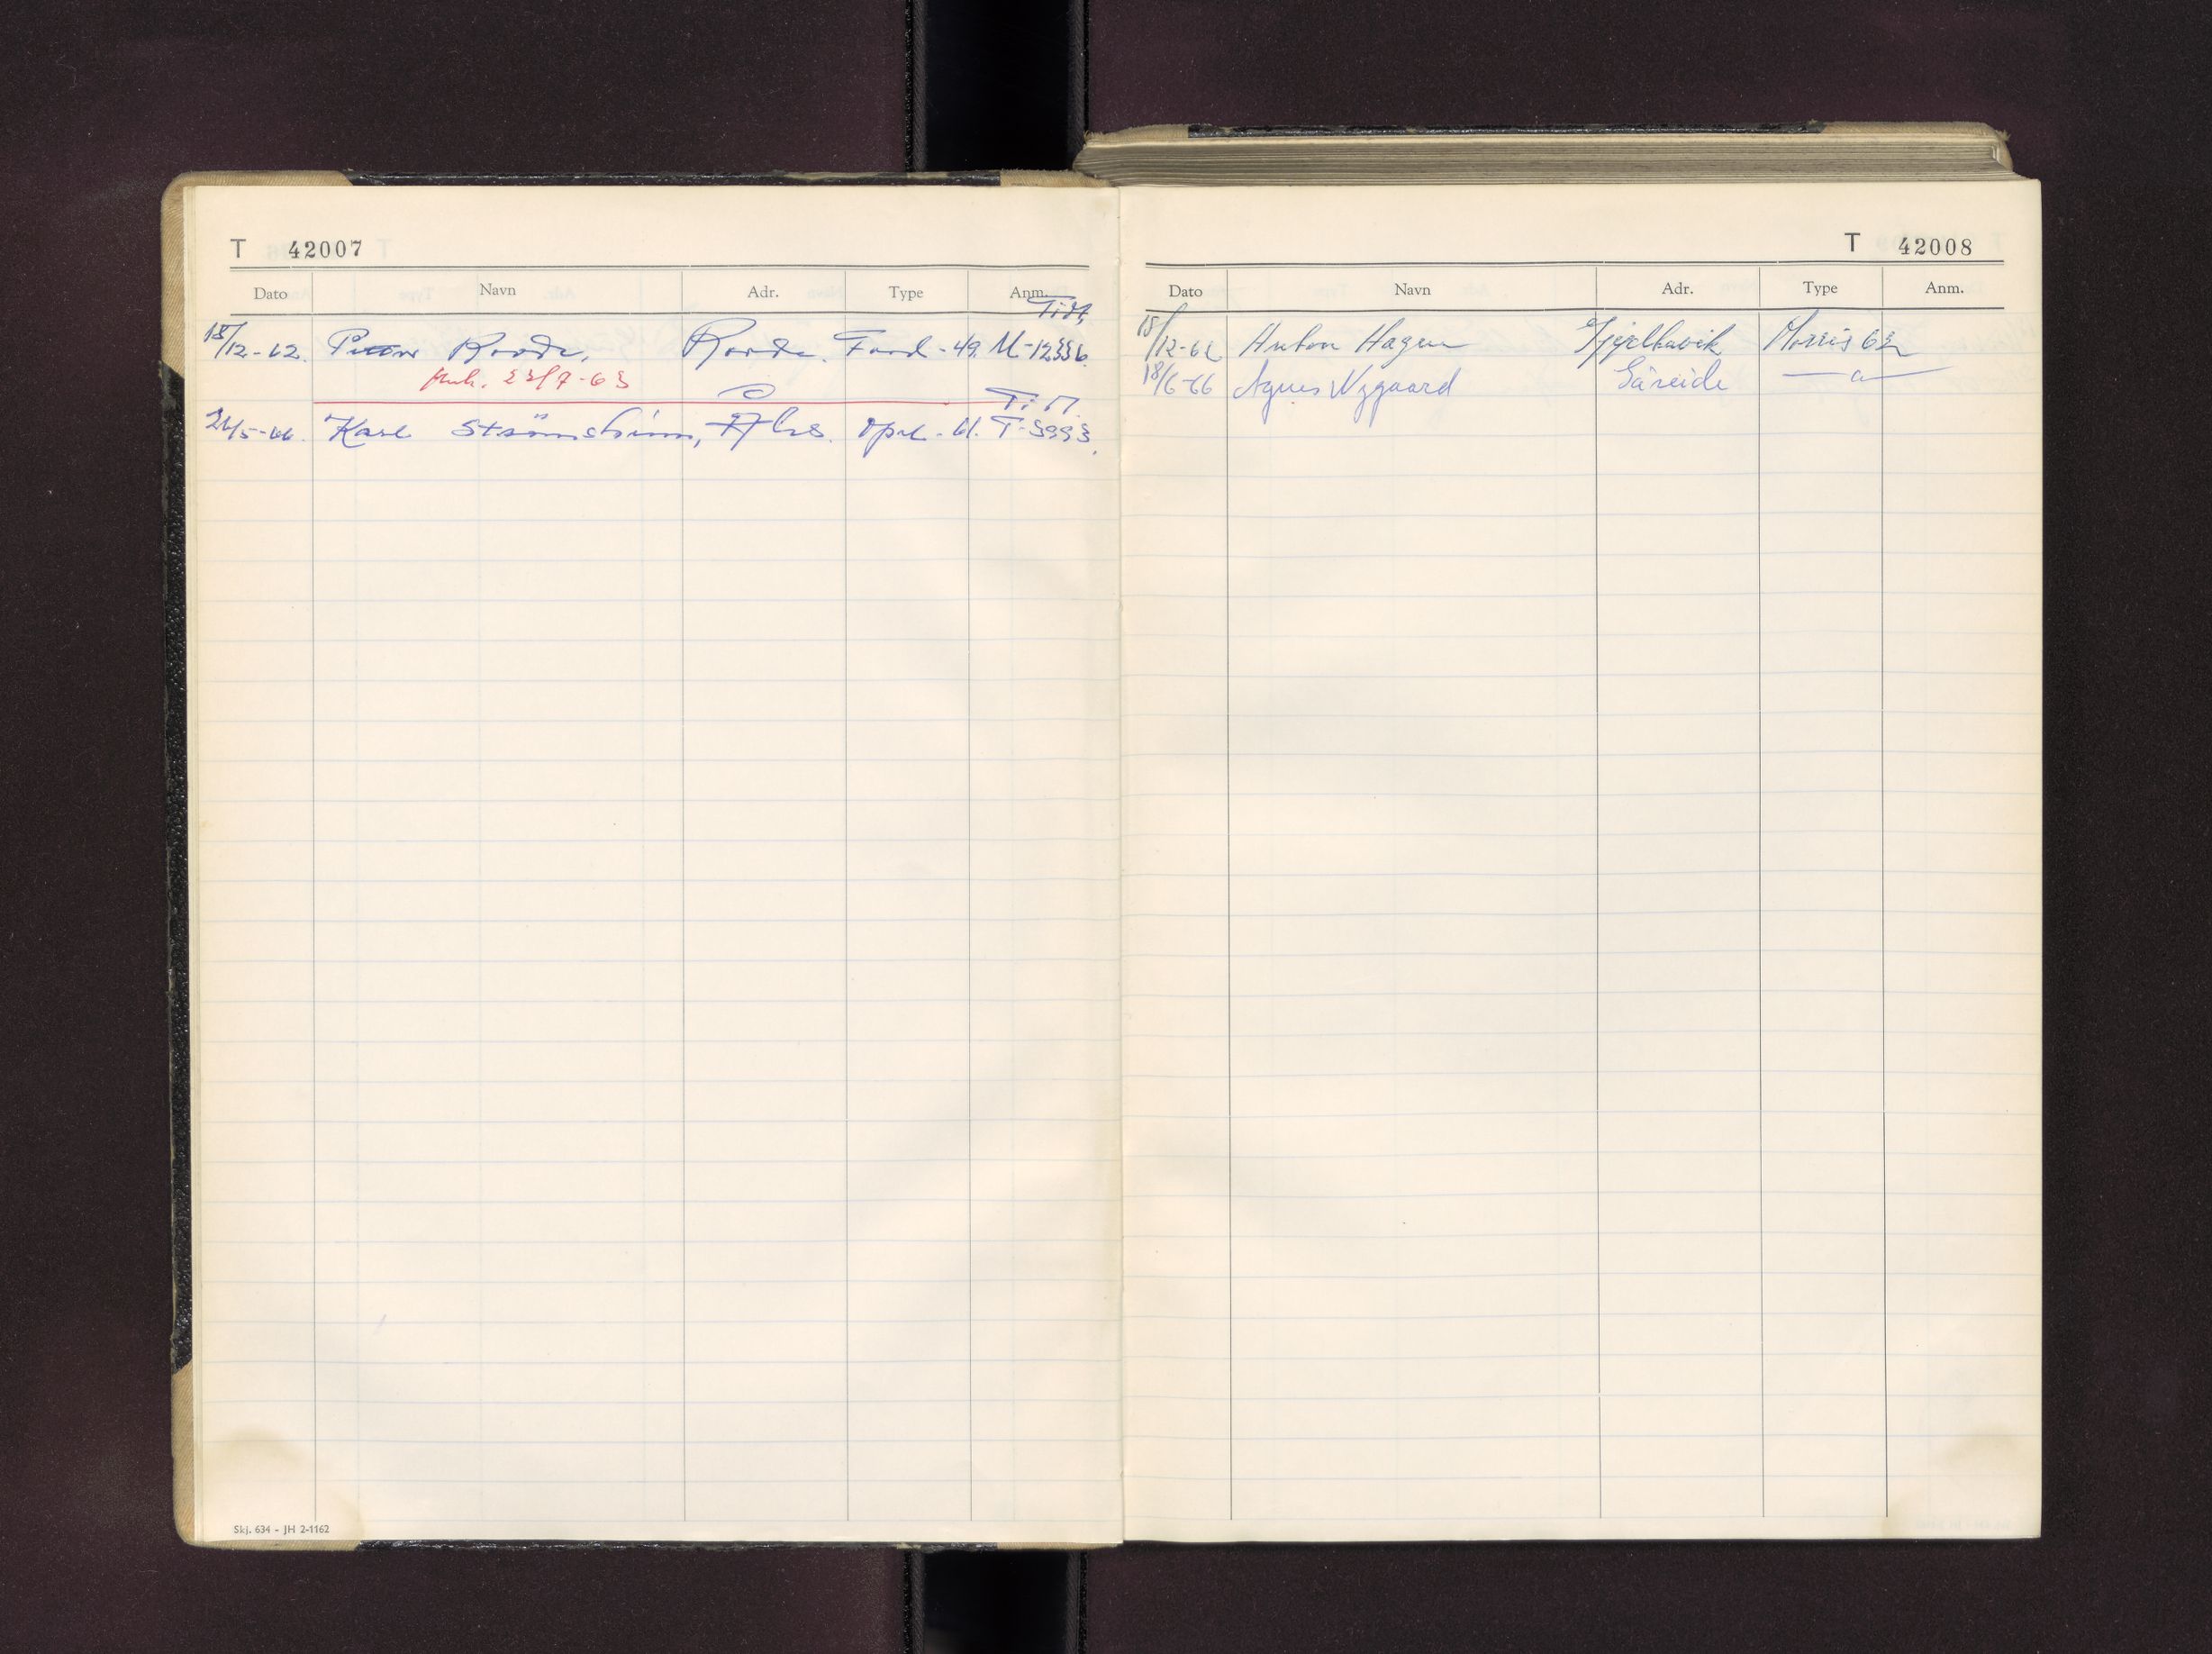 T 42007
Dato Navn Adr. Type Anm.
Tidl.
18/12-62. Petter Rovde, Rovde. Ford-49. M-12336.
23/7-63
Tidl.
Karl Strömsheim, Ørsta. Opel-61. T-3993.
Skj. 634 - JH 2-1162
T 42008
Dato Navn Adr. Type Anm.
18/12-62 Anton Hagen Morris 62
18/6-66 Agnes Nygaard Gåseide